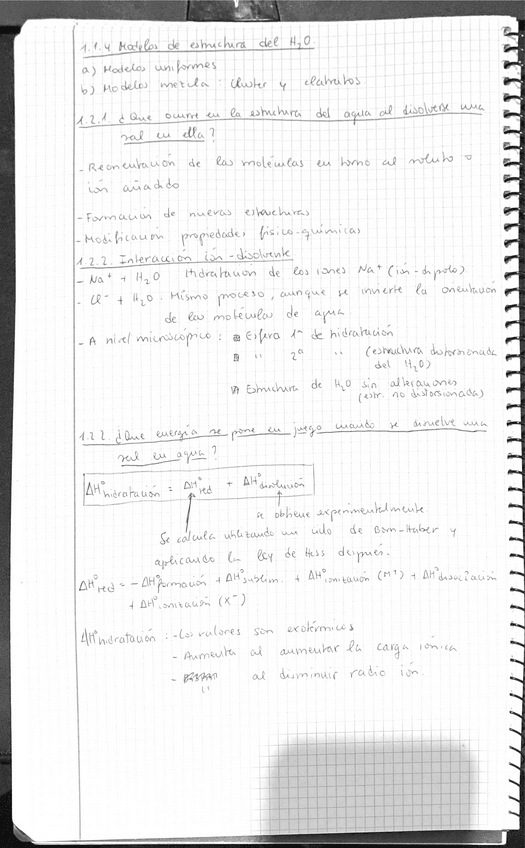 1.1.4 Modelos de estructura del H₂O.
a) Modelos uniformes
b) Modelos mezcla: Cluster y clatratos
1.2.1 ¿Que ocurre en la estrutura del agua al disolverse una
sal en ella?
- Reorientación de las moléculas en torno al soluto o
ión añadido
- Formación de nuevas estructuras
- Modificación propiedades físico-químicas
1.2.2. Interacción ión-disolvente
- Na⁺ + H₂O Hidratación de los iones Na⁺ (ión-dipolo)
- Cl⁻ + H₂O. Mismo proceso, aunque se invierte la orientación
de las moléculas de agua
- A nivel microscópico: Esfera 1ª de hidratación
" 2ª " (estructura distorsionada
del H₂O)
Estructura de H₂O sin alteraciones
(estr. no distorsionada)
1.2.2. ¿Que energía se pone en juego cuando se disuelve una
sal en agua?
ΔH°hidratación = ΔH°red + ΔH°disolución
se obtiene experimentalmente
Se calcula utilizando un ciclo de Born-Haber y
aplicando la ley de Hess después.
ΔH°red = -ΔH°formación + ΔH°sublim. + ΔH°ionización (M⁺) + ΔH°disociación
+ ΔH°ionización (X⁻)
ΔH°hidratación: - Los valores son exotérmicos
- Aumenta al aumentar la carga iónica
- " al disminuir radio ión.